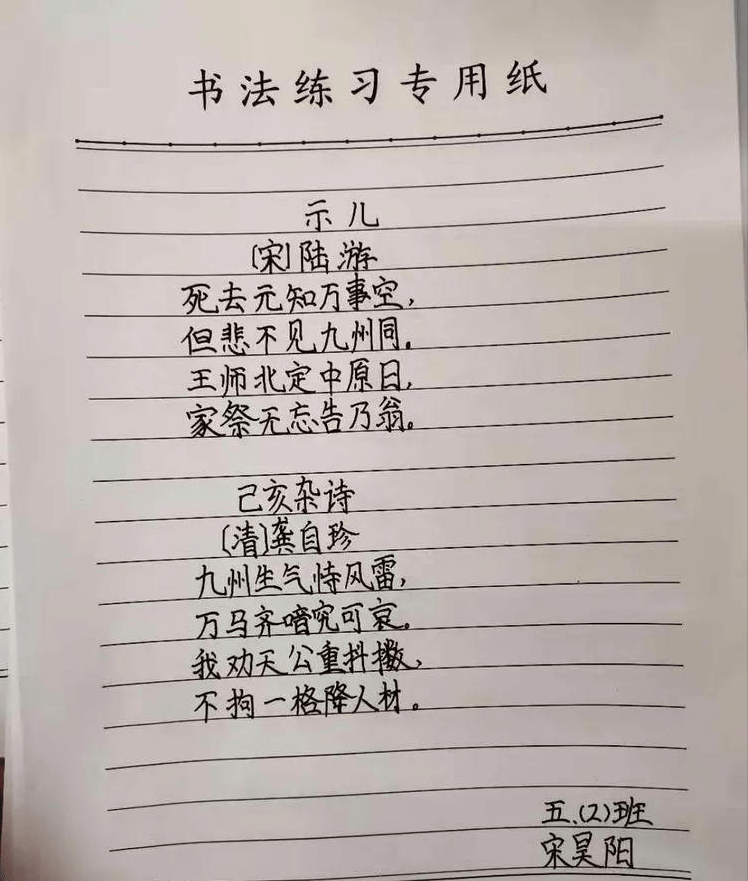 书法练习专用纸
示儿
〔宋〕陆游
死去元知万事空，
但悲不见九州同。
王师北定中原日，
家祭无忘告乃翁。
己亥杂诗
〔清〕龚自珍
九州生气恃风雷，
万马齐喑究可哀。
我劝天公重抖擞，
不拘一格降人材。
五.(2)班
宋昊阳